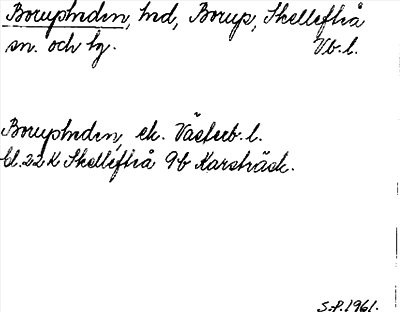 Borupheden, hed, Borup, Skellefteå
sn. och tg. Vb. l.
Borupheden, ek. Västerb. l.
bl. 22 K Skellefteå 9b Karsträsk.
S.P. 1961.